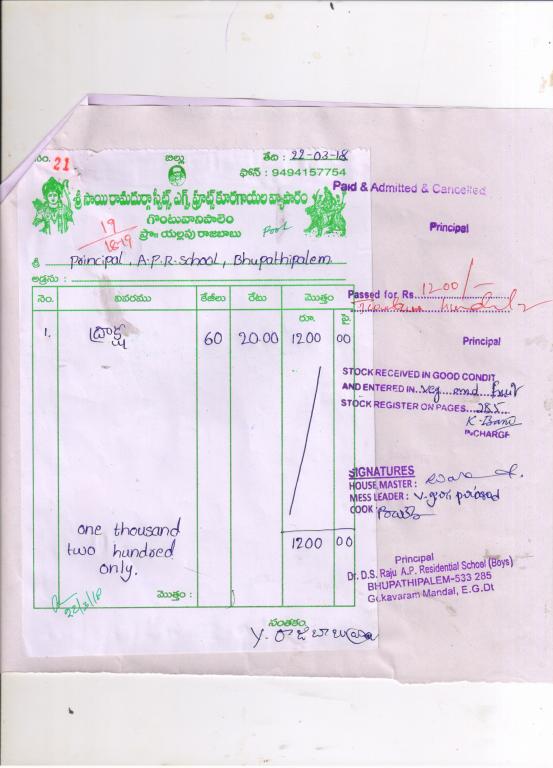 నం. 21 బిల్లు తేది : 22-03-18
ఫోన్ : 9494157754
శ్రీ సాయి రామదుర్గా స్వీట్స్, ఎగ్స్, ఫ్రూట్స్ కూరగాయల వ్యాపారం
గొంటువానిపాలెం
ప్రొః యల్లపు రాజబాబు
19
18-19
శ్రీ Principal, A.P.R-School, Bhupathipalem
అడ్రసు :
నెం. వివరము కేజీలు రేటు మొత్తం
రూ. పై.
1. ద్రాక్ష 60 20.00 1200 00
one thousand
two hundred
only.
1200 00
మొత్తం :
22/3/18
సంతకం
Y. రాజబాబు
Paid & Admitted & Cancelled
Principal
Passed for Rs. 1200/-
Principal
STOCK RECEIVED IN GOOD CONDIT
AND ENTERED IN veg and fruit
STOCK REGISTER ON PAGES 285
K. Bano
INCHARGE
SIGNATURES
HOUSE MASTER :
MESS LEADER : V. giri prasad
COOK :
Principal
Dr. D.S. Raju A.P. Residential School (Boys)
BHUPATHIPALEM-533 285
Gokavaram Mandal, E.G.Dt